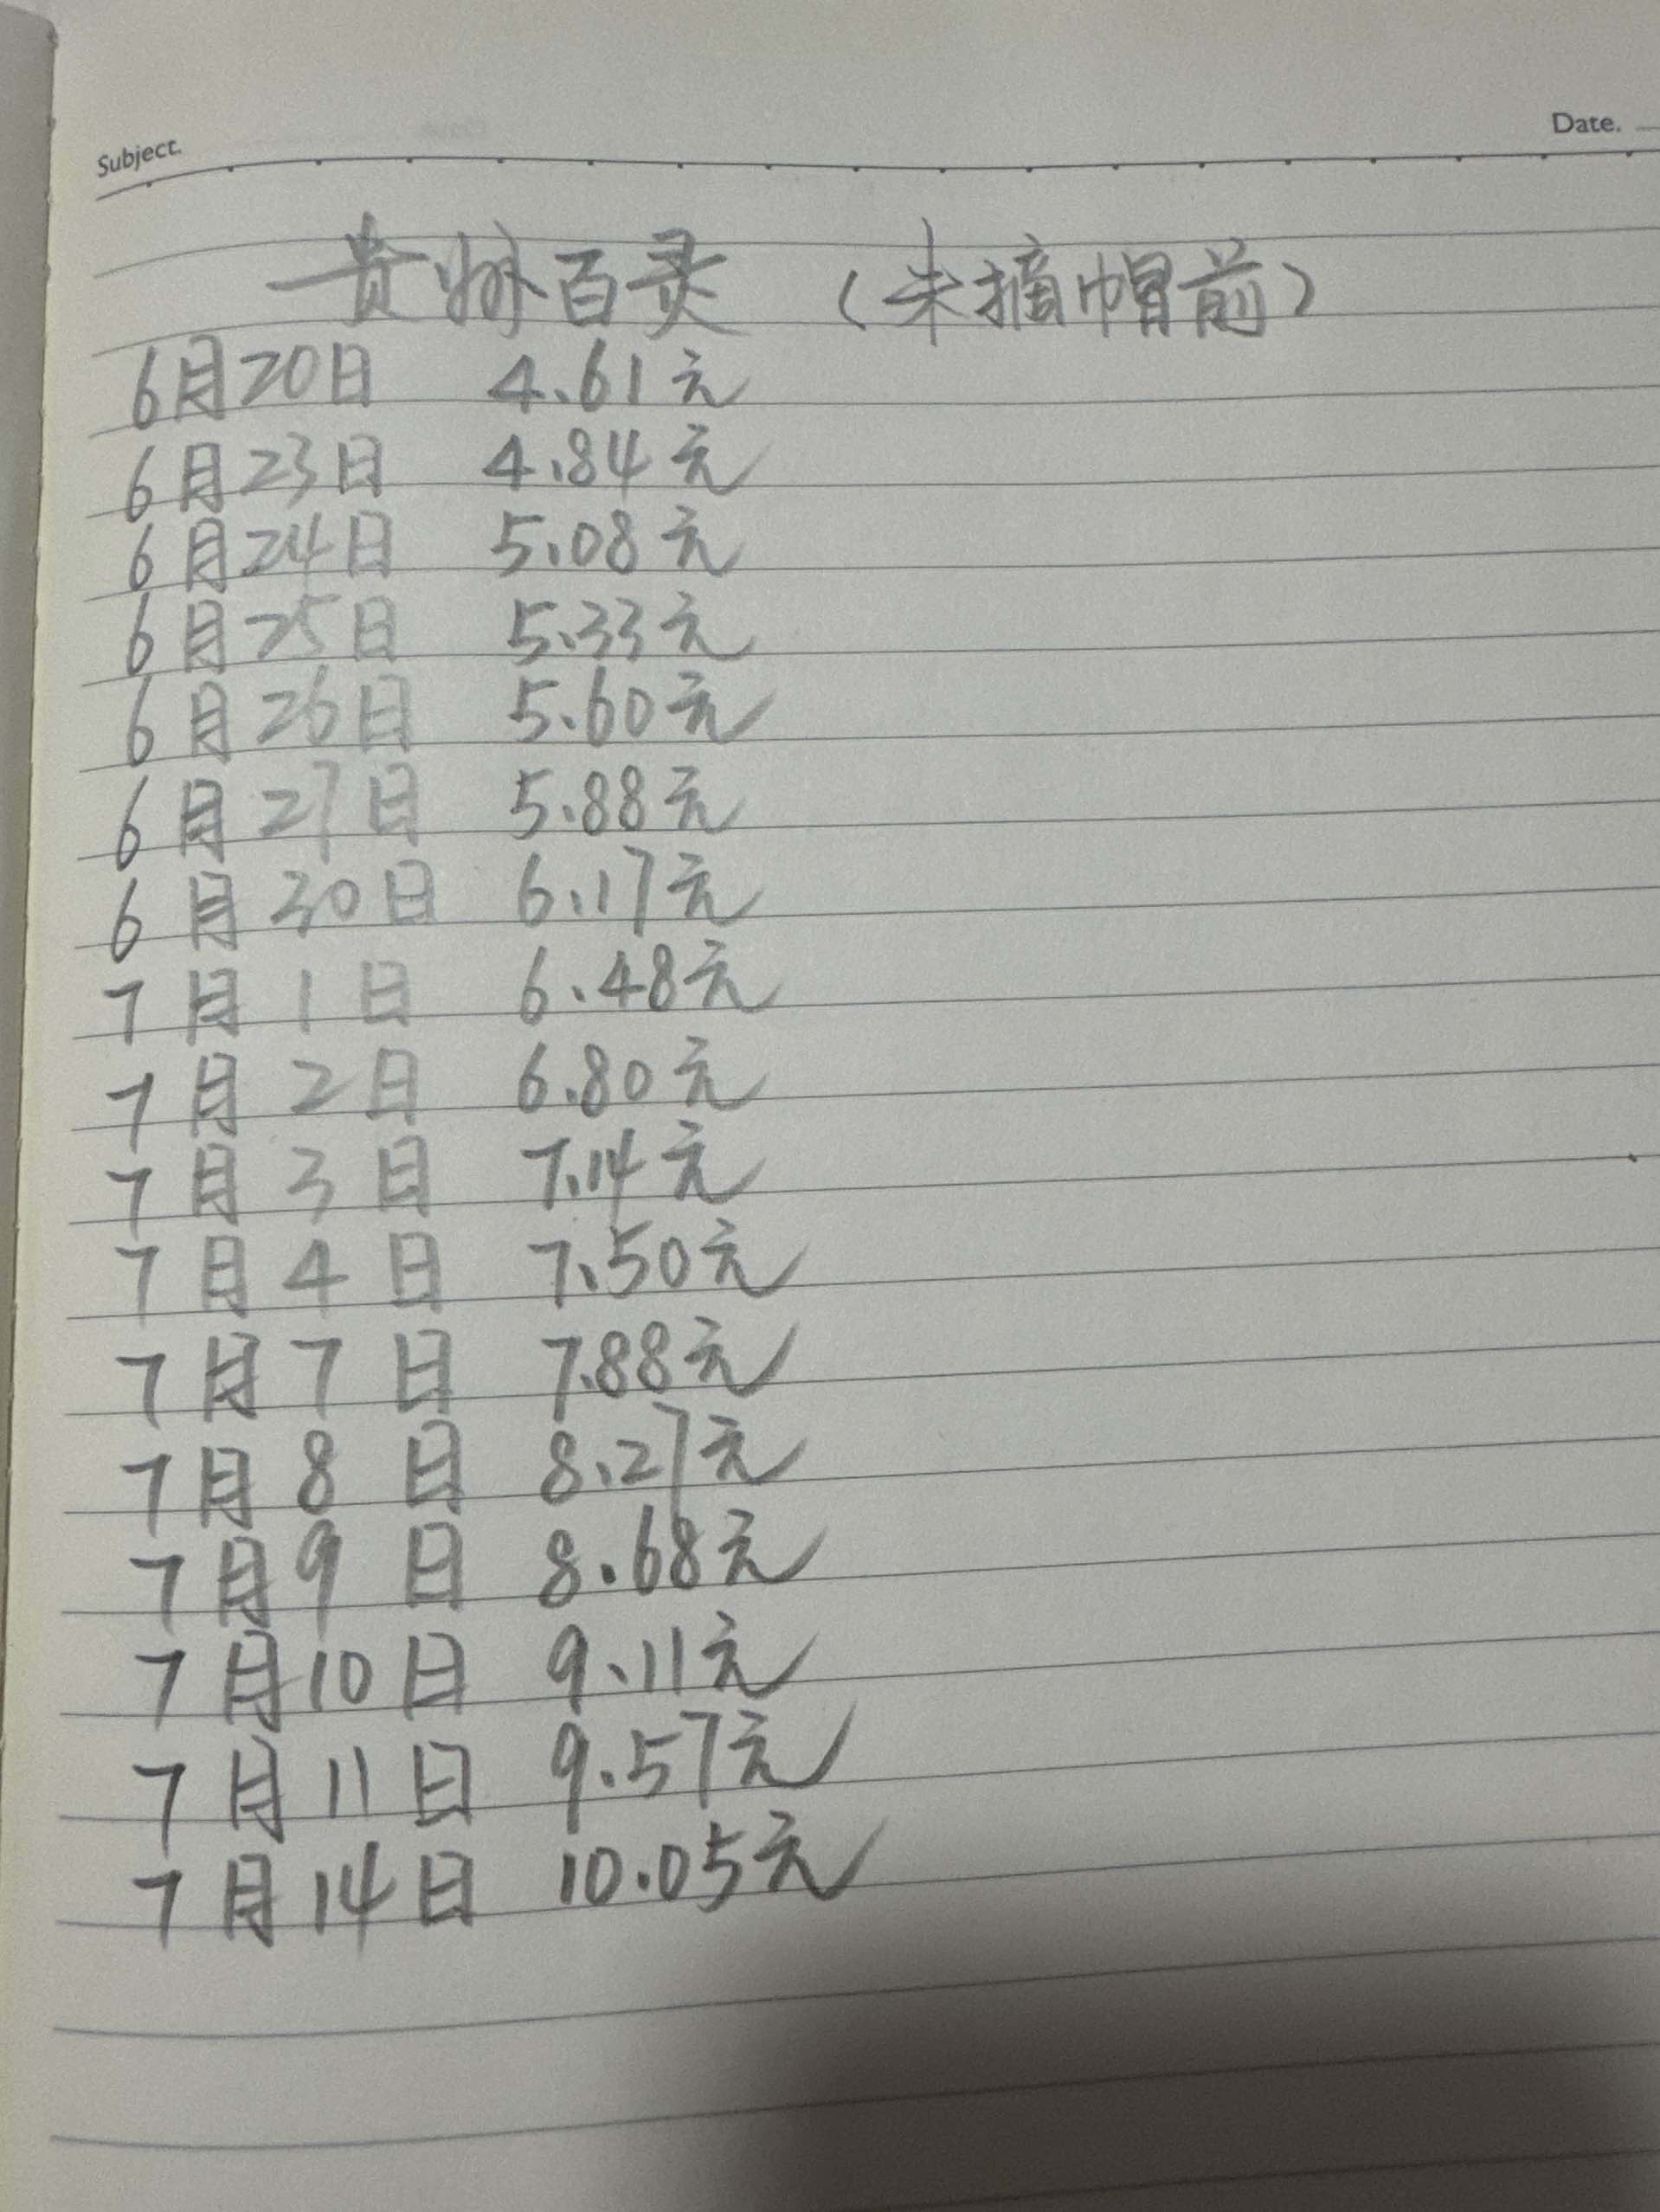 Subject.
Date.
贵州百灵 (未摘帽前)
6月20日 4.61元
6月23日 4.84元
6月24日 5.08元
6月25日 5.33元
6月26日 5.60元
6月27日 5.88元
6月30日 6.17元
7月1日 6.48元
7月2日 6.80元
7月3日 7.14元
7月4日 7.50元
7月7日 7.88元
7月8日 8.27元
7月9日 8.68元
7月10日 9.11元
7月11日 9.57元
7月14日 10.05元